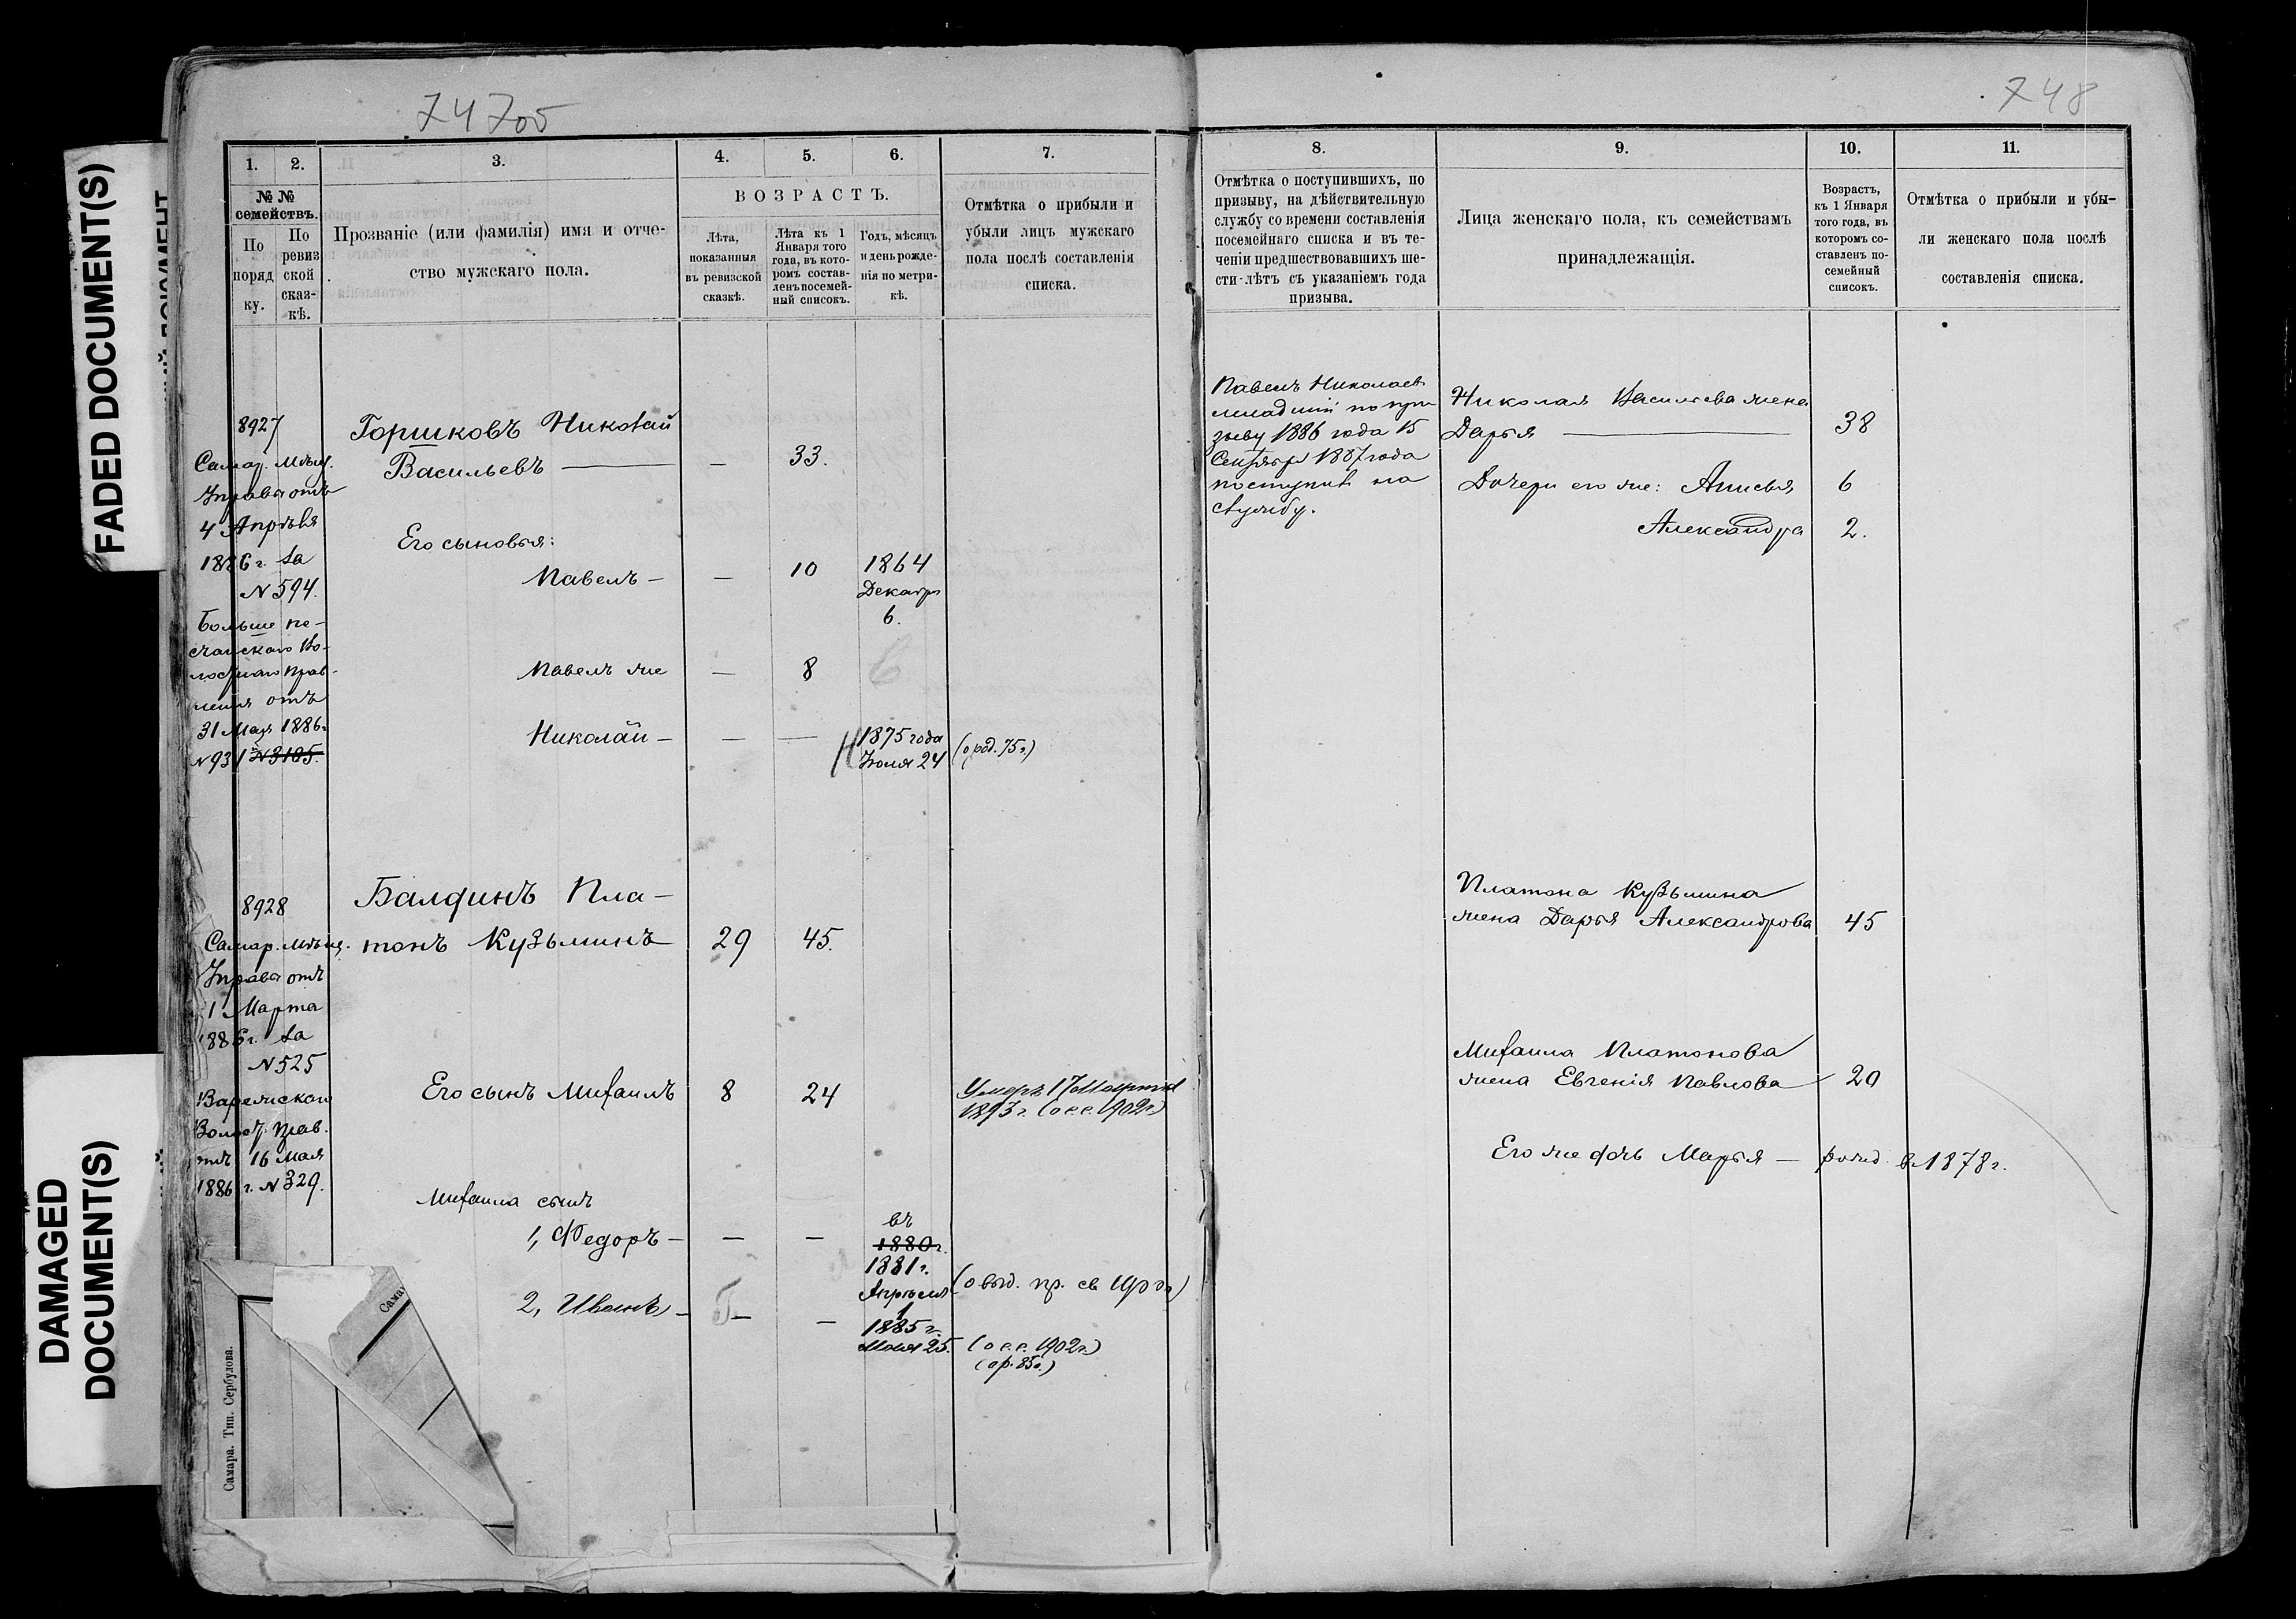 FADED DOCUMENT(S)
DAMAGED
DOCUMENT(S)
747об
748
1. 2. 3. 4. 5. 6. 7.
№ № семействъ.
По порядку.
По ревизской сказкѣ.
Прозваніе (или фамилія) имя и отчество мужскаго пола.
ВОЗРАСТЪ.
Лѣта, показанныя въ ревизской сказкѣ.
Лѣта къ 1 Января того года, въ которомъ составленъ посемейный списокъ.
Годъ, мѣсяцъ и день рожденія по метрикѣ.
Отмѣтка о прибыли и убыли лицъ мужскаго пола послѣ составленія списка.
8927
Самар. Мѣщ.
Управы отъ
4 Апрѣля
1886 г. за
№ 594.
Больше пе-
счанскаго Во-
лостнаго прав-
ленія отъ
31 Мая 1886 г
№ 931 № 3185.
Горшковъ Николай
Васильевъ — — 33.
Его сыновья:
Павелъ — — 10 1864
Декабря
6.
Павелъ же — 8
Николай — — — 1875 года
Іюля 24 (о род. 75 г.)
8928
Самар. Мѣщ.
Управы отъ
1 Марта
1886 г. за
№ 525
Волост. Прав.
отъ 16 Мая
1886 г. № 329.
Балдинъ Пла-
тонъ Кузьминъ 29 45.
Его сынъ Михаилъ 8 24 Умеръ 17 Марта
1893 г. (о с. с. 1902 г.)
Михаила сынъ
1, Федоръ — — — въ
1880 г.
1881 г.
Апрѣля
1
2, Иванъ — — —
1885 г.
25. (о с. с. 1902 г.)
(о р. 85 г.)
Самара. Тип. Сербулова.
Сама
8. 9. 10. 11.
Отмѣтка о поступившихъ, по
призыву, на дѣйствительную
службу со времени составленія
посемейнаго списка и въ те-
ченіи предшествовавшихъ ше-
сти-лѣтъ съ указаніемъ года
призыва.
Лица женскаго пола, къ семействамъ
принадлежащія.
Возрастъ,
къ 1 Января
того года, въ
которомъ со-
ставленъ по-
семейный
списокъ.
Отмѣтка о прибыли и убы-
ли женскаго пола послѣ
составленія списка.
Павелъ Николаев
младшій по при
зыву 1886 года 15
Сентября 1887 года
поступил на
службу.
Николая Васильева жена
Дарья — 38
Дочери его же: Анисья 6
Александра 2.
Платона Кузьмина
жена Дарья Александрова 45
Михаила Платонова
жена Евгенія Павлова 20
Его же дочь Марья — рожд. в 1878 г.